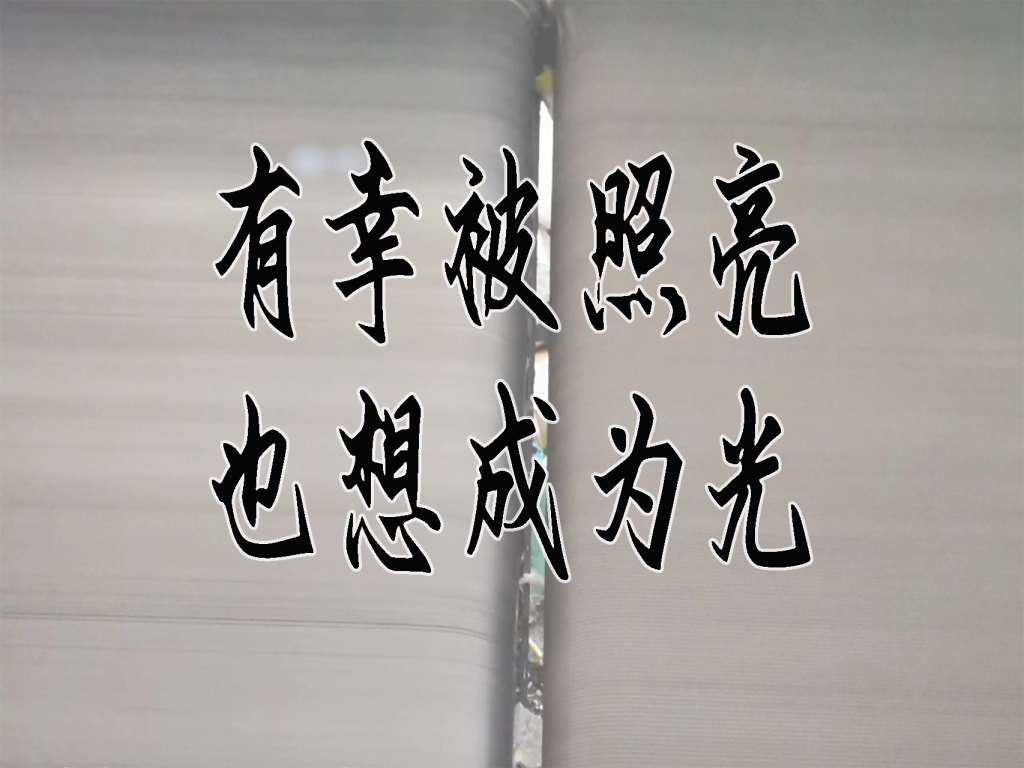 有幸被照亮
也想成为光